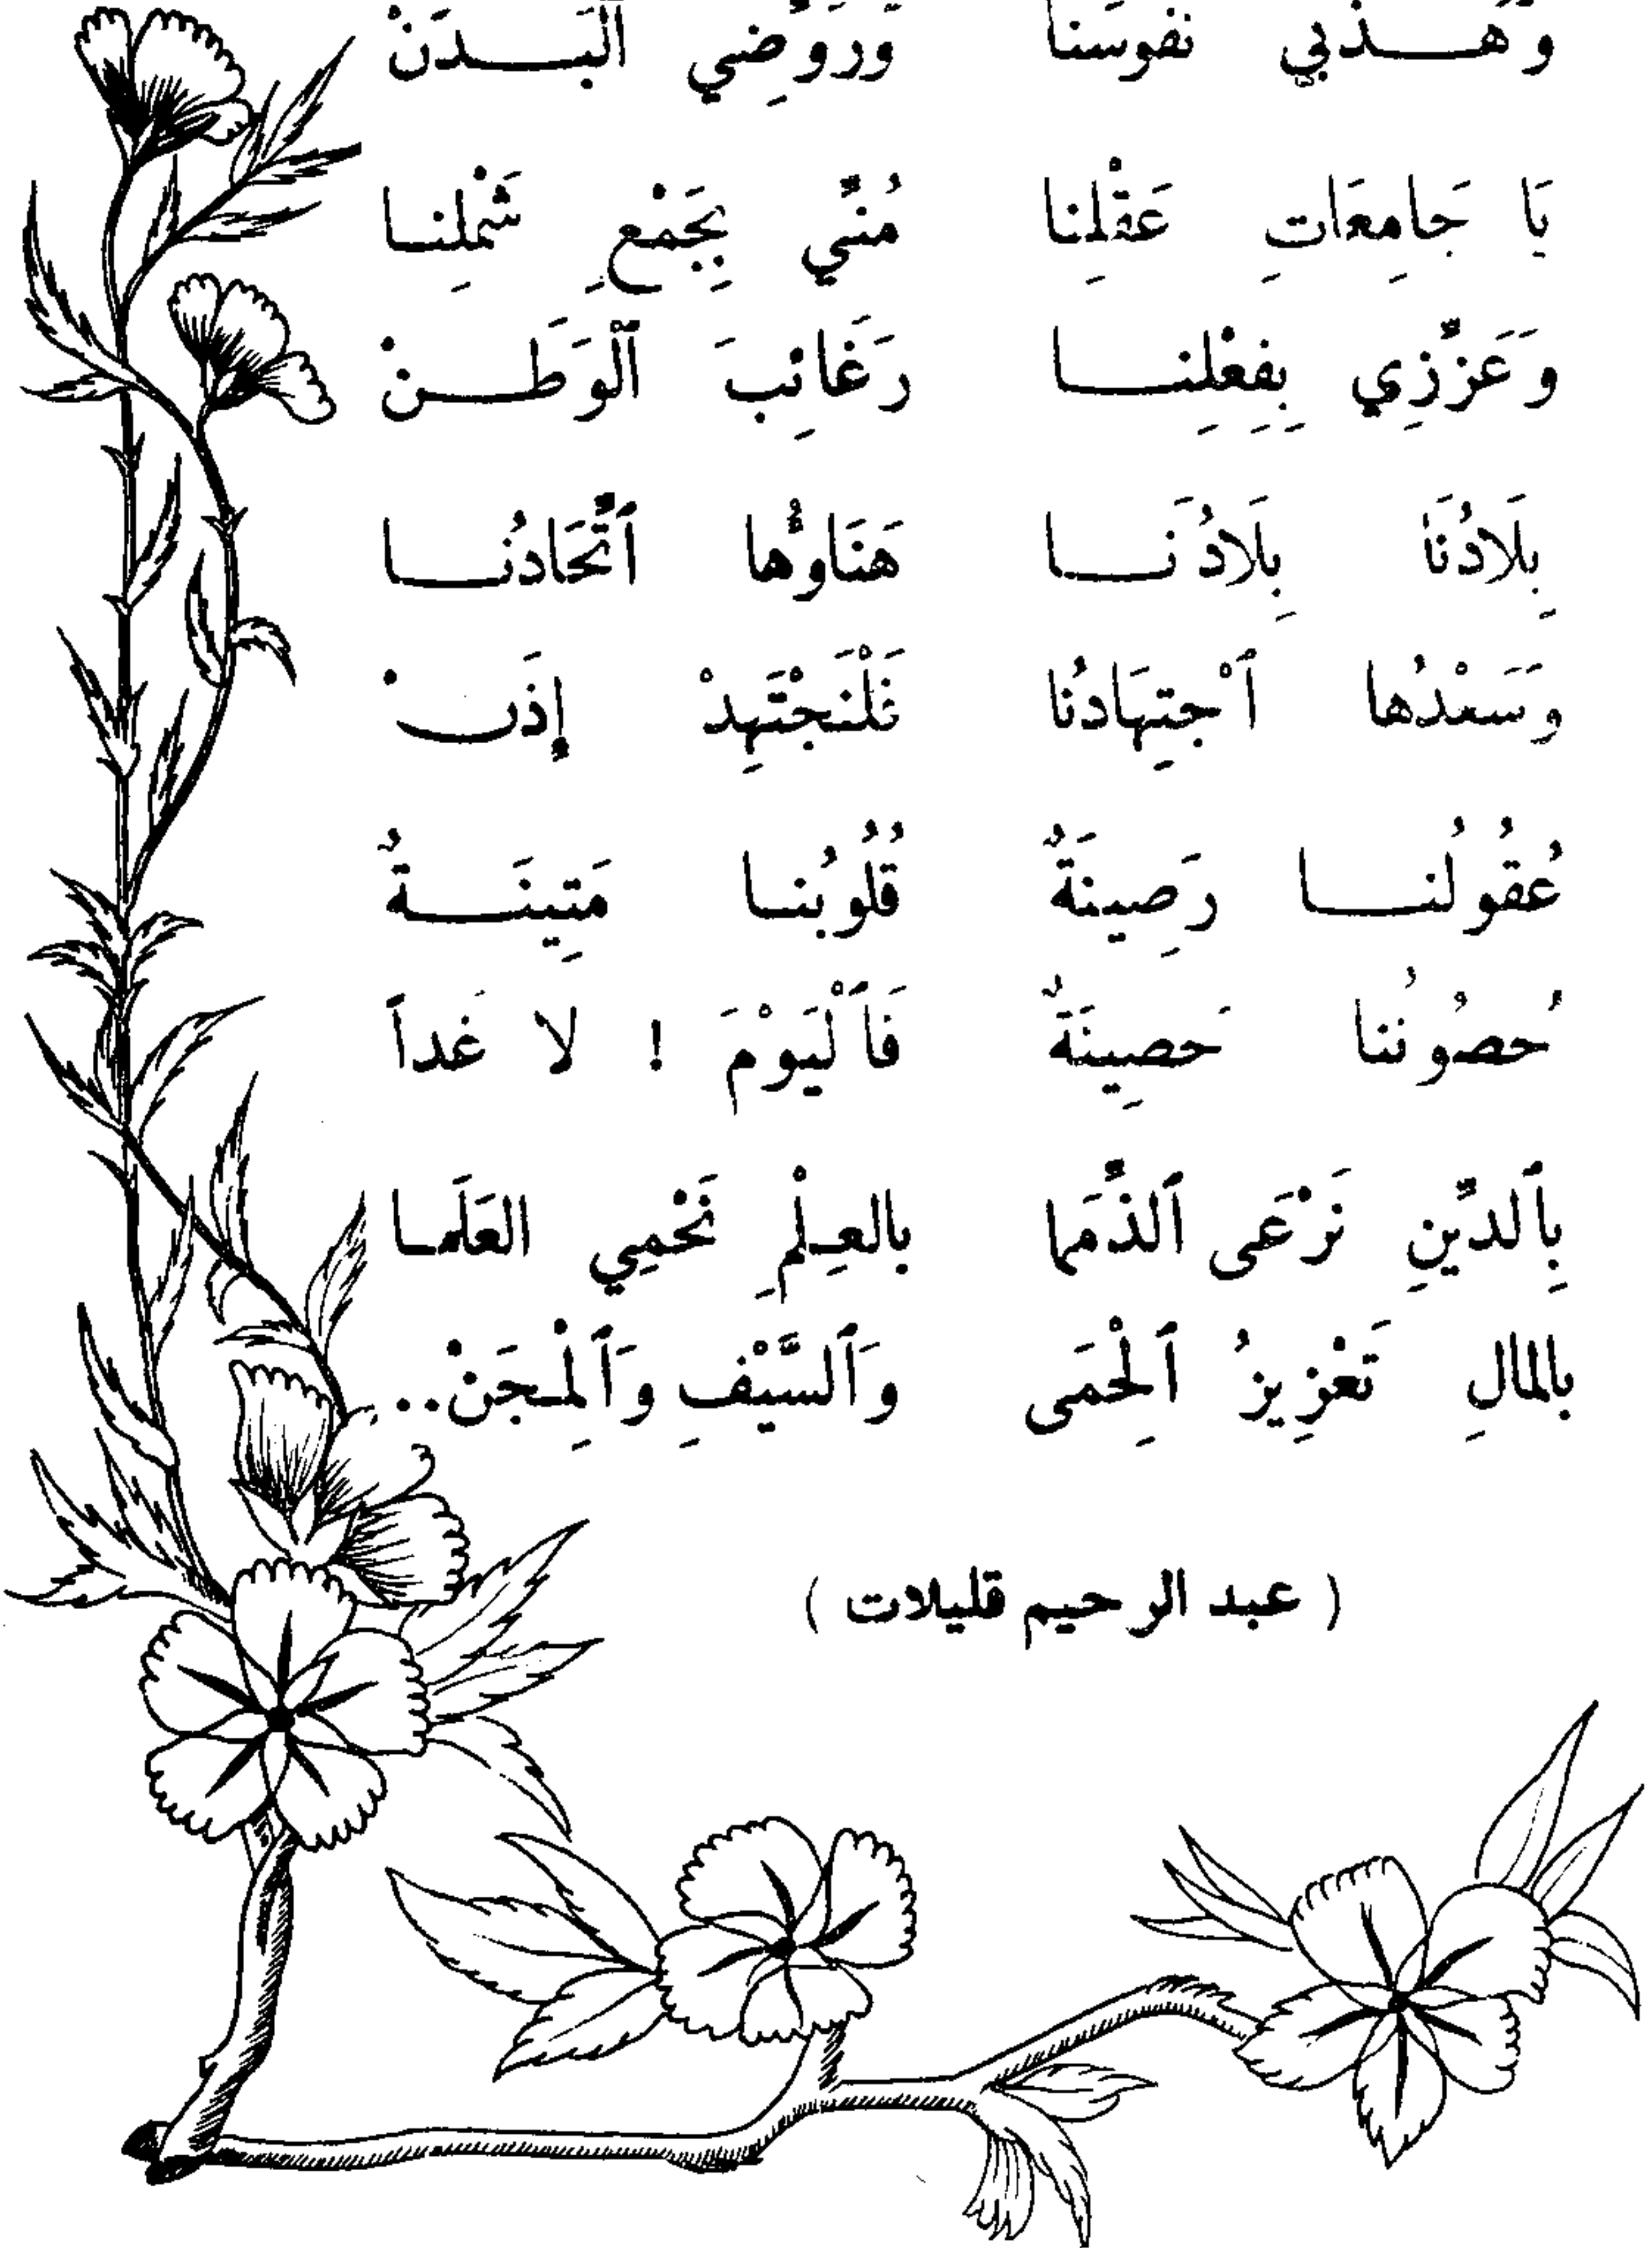 وَهَــذِّبِي نُفُوسَنَا وَرَوِّضِي ٱلْبَــدَنْ
يَا جَامِعَاتِ عَقْلِنا مُنِّي بِجَمْعِ شَمْلِنـا
وَعَزِّزِي بِفِعْلِنــا رَغَائِبَ ٱلْوَطَــنْ
بِلَادُنَا بِلَادُنَــا هَنَاؤُها ٱتِّحَادُنــا
وَسَعْدُها ٱجْتِهَادُنا فَلْنَجْتَهِدْ إِذَنْ
عُقُولُنــا رَصِينَةٌ قُلُوبُنـا مَتِينَــةٌ
حُصُونُنا حَصِينَةٌ فَٱلْيَوْمَ ! لا غَداً
بِٱلدِّينِ نَرْعَى ٱلذِّمَما بالعِـلْمِ نَحْمِي العَلَمـا
بالمالِ تَعْزِيزُ ٱلْحِمَى وَٱلسَّيْفِ وَٱلْمِـجَنْ..
( عبد الرحيم قليلات )